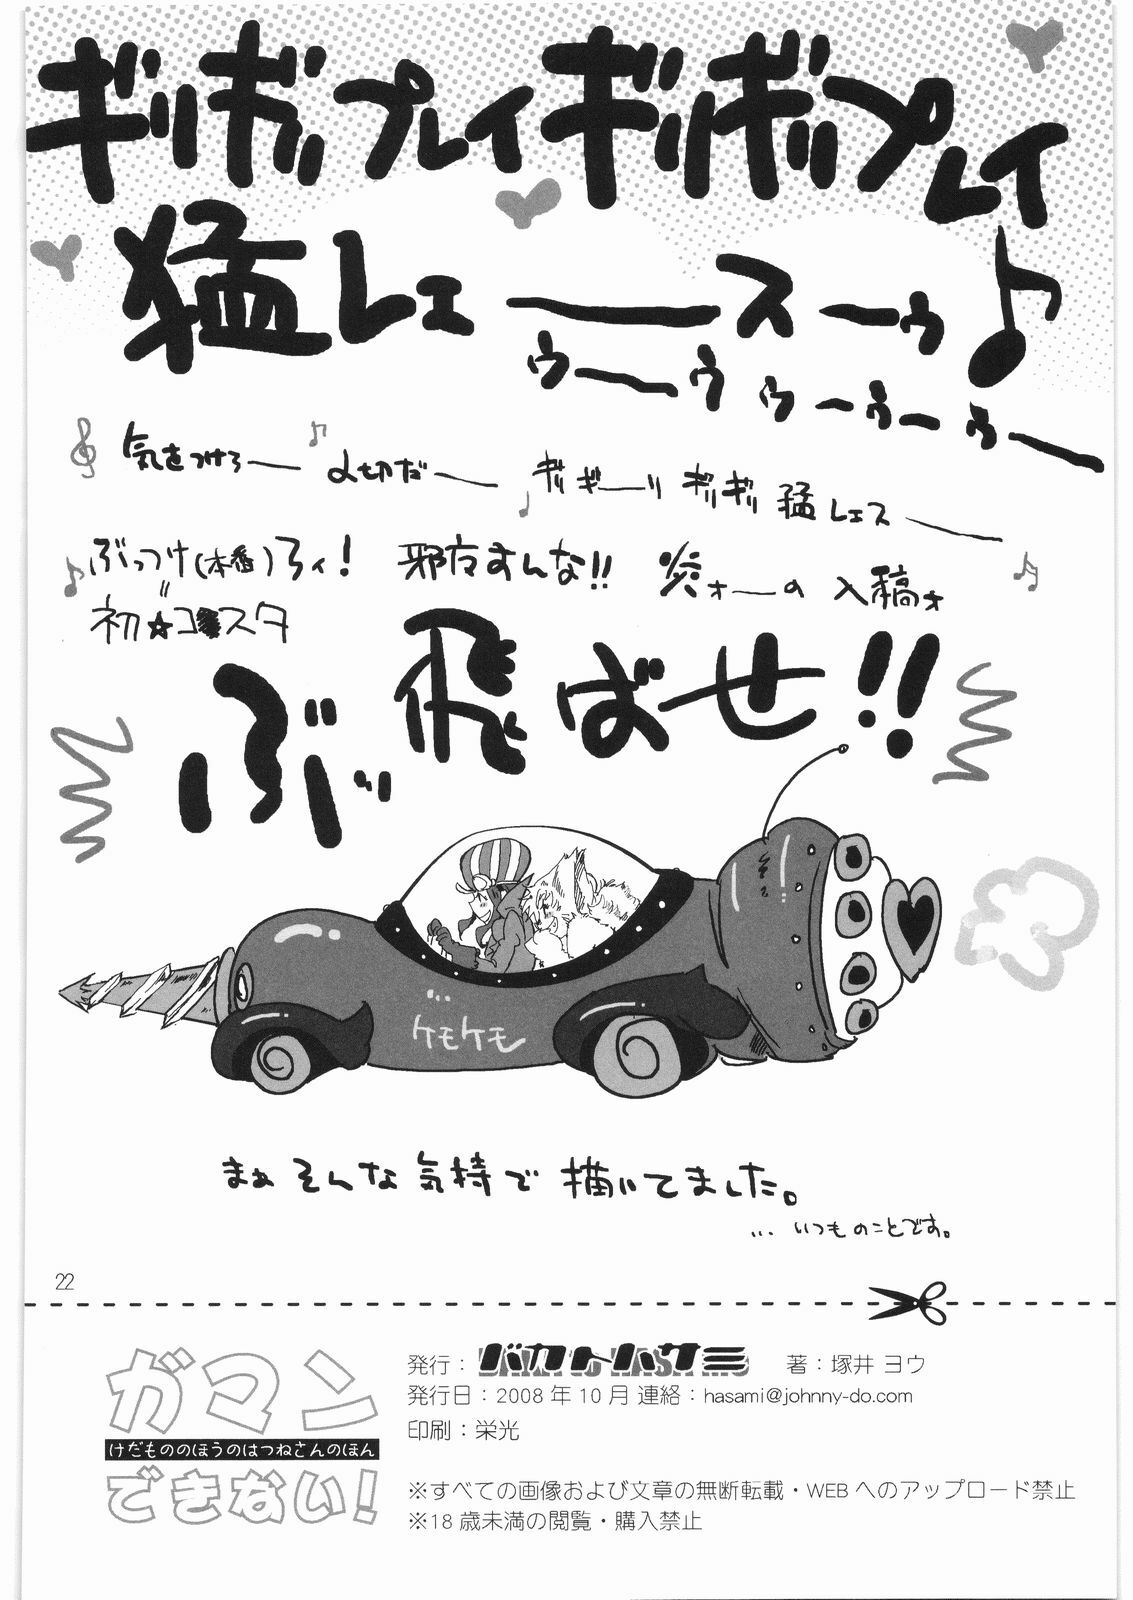 ギリギリプレイギリギリプレイ
猛レェーースーゥ♪
ゥーーゥゥーゥーゥー
気をつけろー よせわだー ギリギーリ ギリギリ 猛レェスー
ぶっつけ(本番)ろィ! 邪魔すんな!! 炎ォーの 入稿ォ
初☆コミスタ
ぶッ飛ばせ!!
ケモケモ
まぁ そんな 気持で 描いてました。
… いつものことです。
22
ガマン
けだもののほうのはつねさんのほん
できない!
発行:バカトハサミ 著:塚井 ヨウ
発行日:2008 年 10 月 連絡:hasami@johnny-do.com
印刷:栄光
※すべての画像および文章の無断転載・WEB へのアップロード禁止
※18 歳未満の閲覧・購入禁止